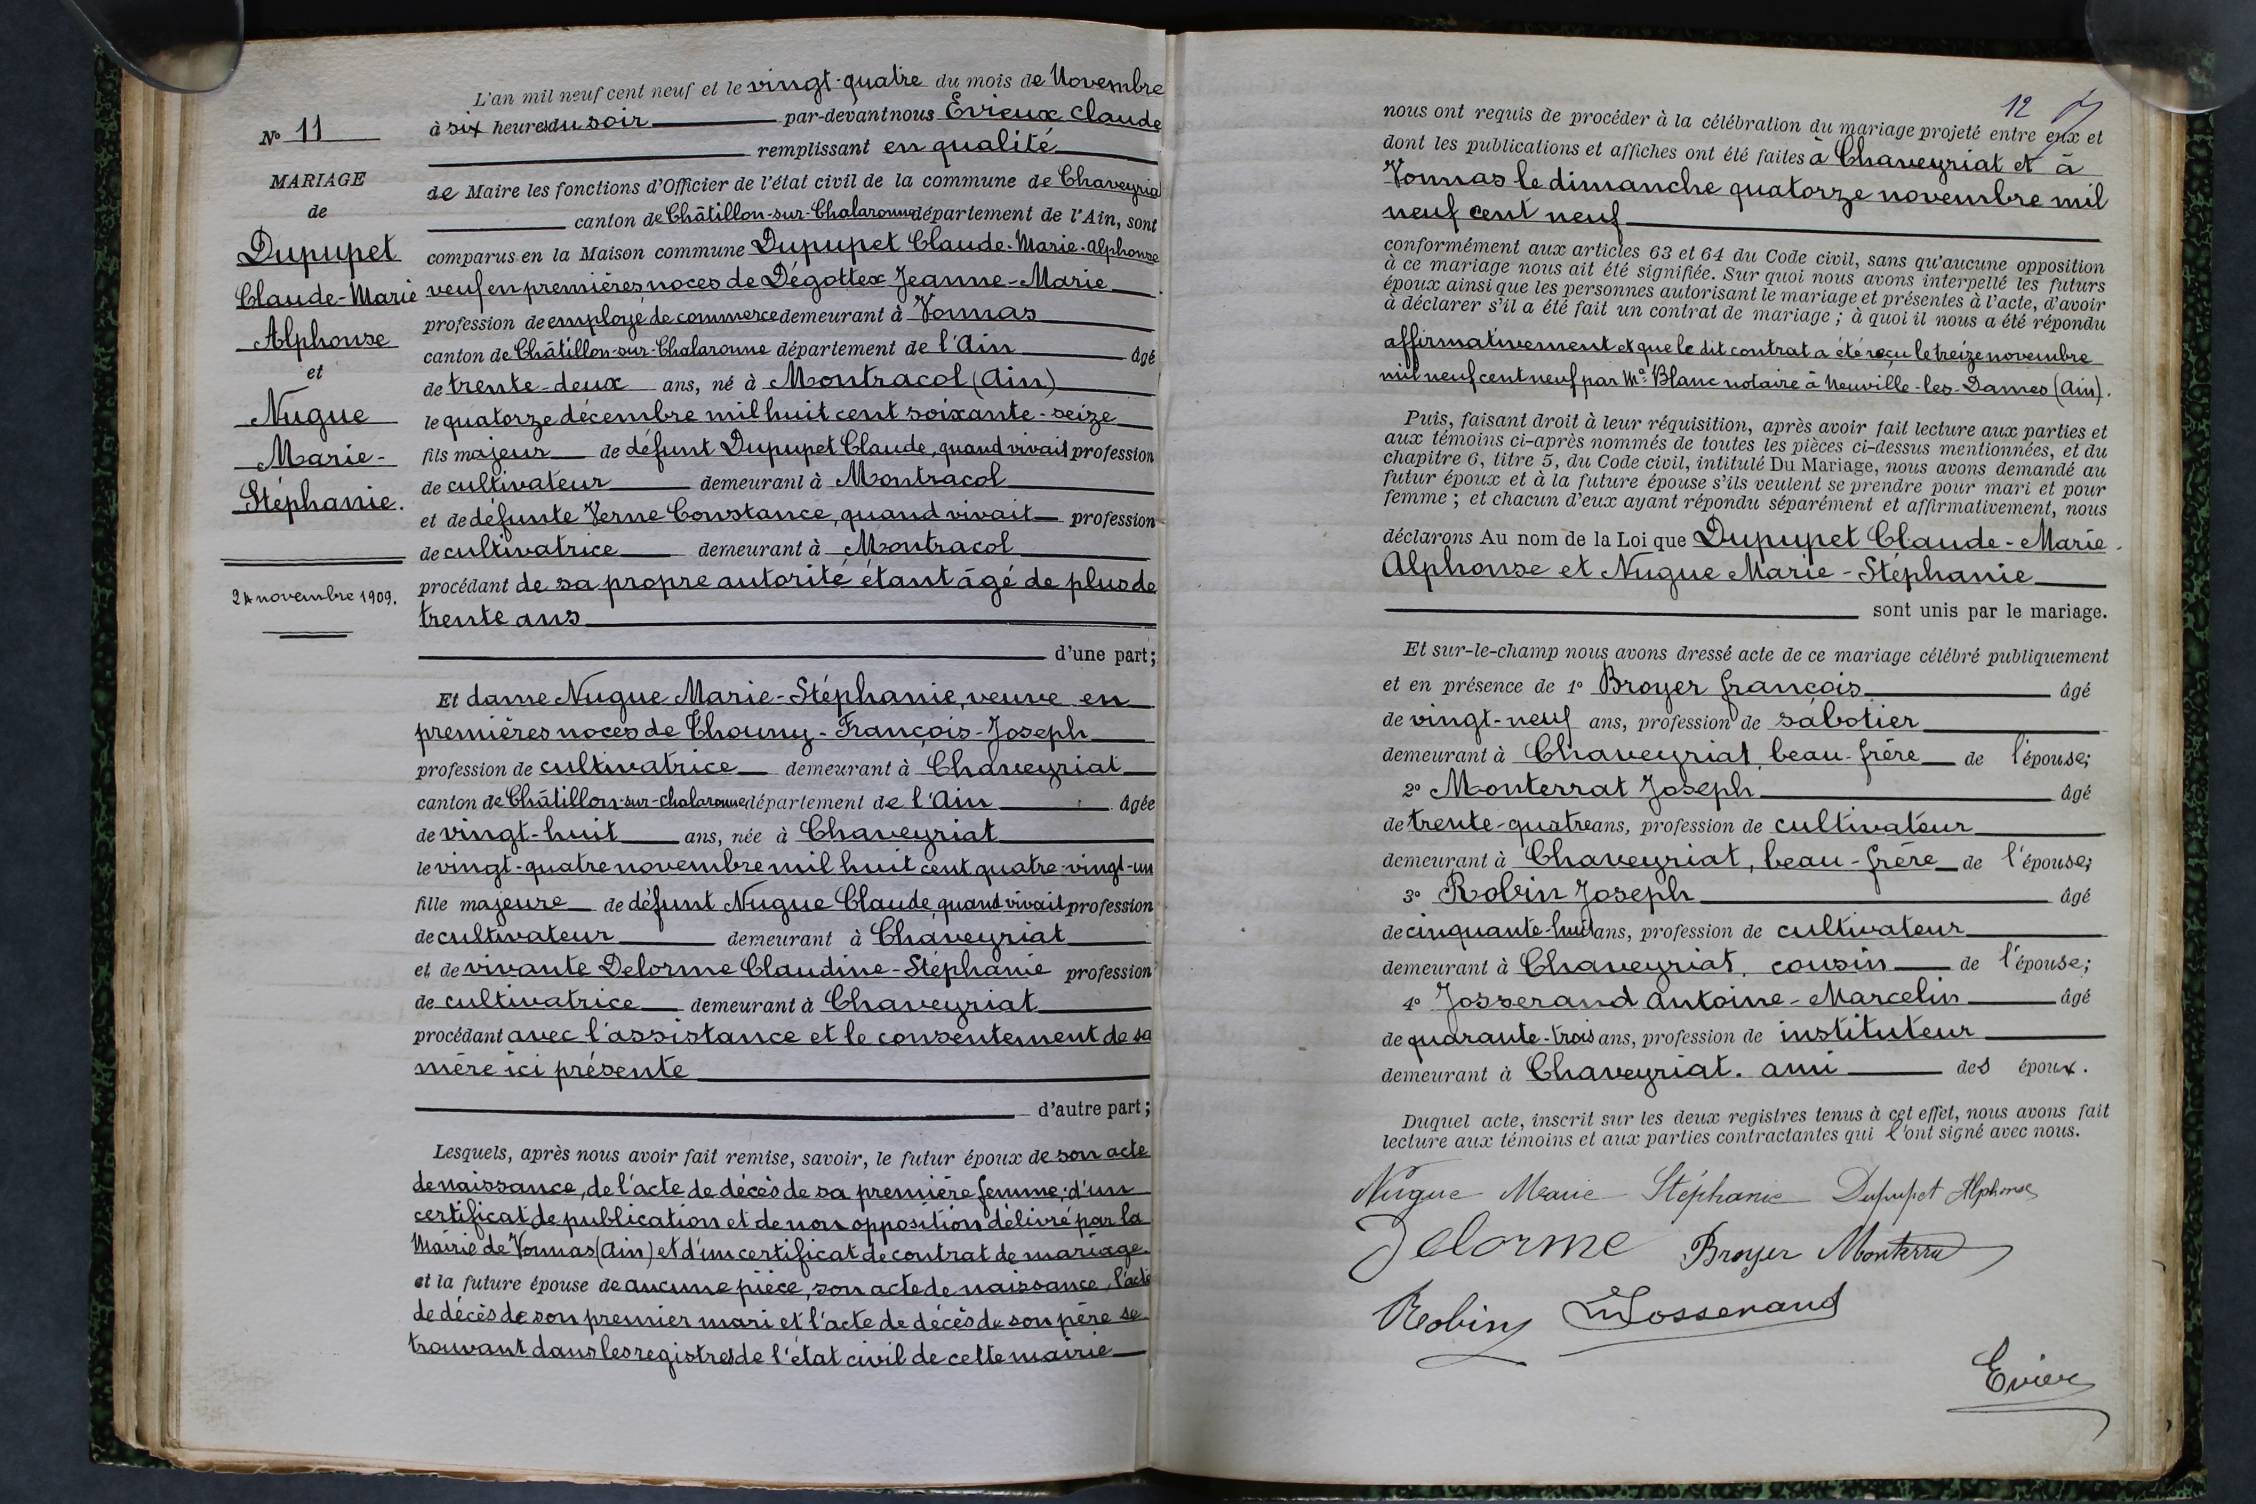 N° 11
MARIAGE
de
Dupupet
Claude-Marie
Alphonse
et
Nugue
Marie-
Stéphanie.
24 novembre 1909.
L'an mil neuf cent neuf et le vingt-quatre du mois de Novembre
à six heures du soir par-devant nous Evieux Claude
remplissant en qualité
de Maire les fonctions d'Officier de l'état civil de la commune de Chaveyria
canton de Châtillon-sur-Chalaronne département de l'Ain, sont
comparus en la Maison commune Dupupet Claude-Marie-Alphonse
veuf en premières noces de Dégottex Jeanne-Marie
profession de employé de commerce demeurant à Vonnas
canton de Châtillon-sur-Chalaronne département de l'Ain âgé
de trente-deux ans, né à Montracol (Ain)
le quatorze décembre mil huit cent soixante-seize
fils majeur de défunt Dupupet Claude, quand vivait profession
de cultivateur demeurant à Montracol
et de défunte Verne Constance, quand vivait profession
de cultivatrice demeurant à Montracol
procédant de sa propre autorité étant âgé de plus de
trente ans
d'une part;
Et dame Nugue Marie-Stéphanie, veuve en
premières noces de Thouny-François-Joseph
profession de cultivatrice demeurant à Chaveyriat
canton de Châtillon-sur-chalaronne département de l'Ain âgée
de vingt-huit ans, née à Chaveyriat
le vingt-quatre novembre mil huit cent quatre-vingt-un
fille majeure de défunt Nugue Claude, quand vivait profession
de cultivateur demeurant à Chaveyriat
et de vivante Delorme Claudine-Stéphanie profession
de cultivatrice demeurant à Chaveyriat
procédant avec l'assistance et le consentement de sa
mère ici présente
d'autre part;
Lesquels, après nous avoir fait remise, savoir, le futur époux de son acte
de naissance, de l'acte de décès de sa première femme; d'un
certificat de publication et de non opposition délivré par la
Mairie de Vonnas (Ain) et d'un certificat de contrat de mariage.
et la future épouse de aucune pièce, son acte de naissance, l'acte
de décès de son premier mari et l'acte de décès de son père se
trouvant dans les registres de l'état civil de cette mairie
12
nous ont requis de procéder à la célébration du mariage projeté entre eux et
dont les publications et affiches ont été faites à Chaveyriat et à
Vonnas le dimanche quatorze novembre mil
neuf cent neuf
conformément aux articles 63 et 64 du Code civil, sans qu'aucune opposition
à ce mariage nous ait été signifiée. Sur quoi nous avons interpellé les futurs
époux ainsi que les personnes autorisant le mariage et présentes à l'acte, d'avoir
à déclarer s'il a été fait un contrat de mariage; à quoi il nous a été répondu
affirmativement et que le dit contrat a été reçu le treize novembre
mil neuf cent neuf par Me Blanc notaire à Neuville-les-Dames (Ain).
Puis, faisant droit à leur réquisition, après avoir fait lecture aux parties et
aux témoins ci-après nommés de toutes les pièces ci-dessus mentionnées, et du
chapitre 6, titre 5, du Code civil, intitulé Du Mariage, nous avons demandé au
futur époux et à la future épouse s'ils veulent se prendre pour mari et pour
femme; et chacun d'eux ayant répondu séparément et affirmativement, nous
déclarons Au nom de la Loi que Dupupet Claude-Marie
Alphonse et Nugue Marie-Stéphanie
sont unis par le mariage.
Et sur-le-champ nous avons dressé acte de ce mariage célébré publiquement
et en présence de 1° Broyer françois âgé
de vingt-neuf ans, profession de sabotier
demeurant à Chaveyriat, beau-frère de l'épouse;
2° Monterrat Joseph âgé
de trente-quatre ans, profession de cultivateur
demeurant à Chaveyriat, beau-frère de l'épouse;
3° Robin Joseph âgé
de cinquante-huit ans, profession de cultivateur
demeurant à Chaveyriat, cousin de l'épouse;
4° Josserand Antoine-Marcelin âgé
de quarante-trois ans, profession de instituteur
demeurant à Chaveyriat. ami des époux.
Duquel acte, inscrit sur les deux registres tenus à cet effet, nous avons fait
lecture aux témoins et aux parties contractantes qui l'ont signé avec nous.
Nugue Marie Stéphanie Dupupet Alphonse
Delorme Broyer Monterrat
Robin Josserand
Evieux